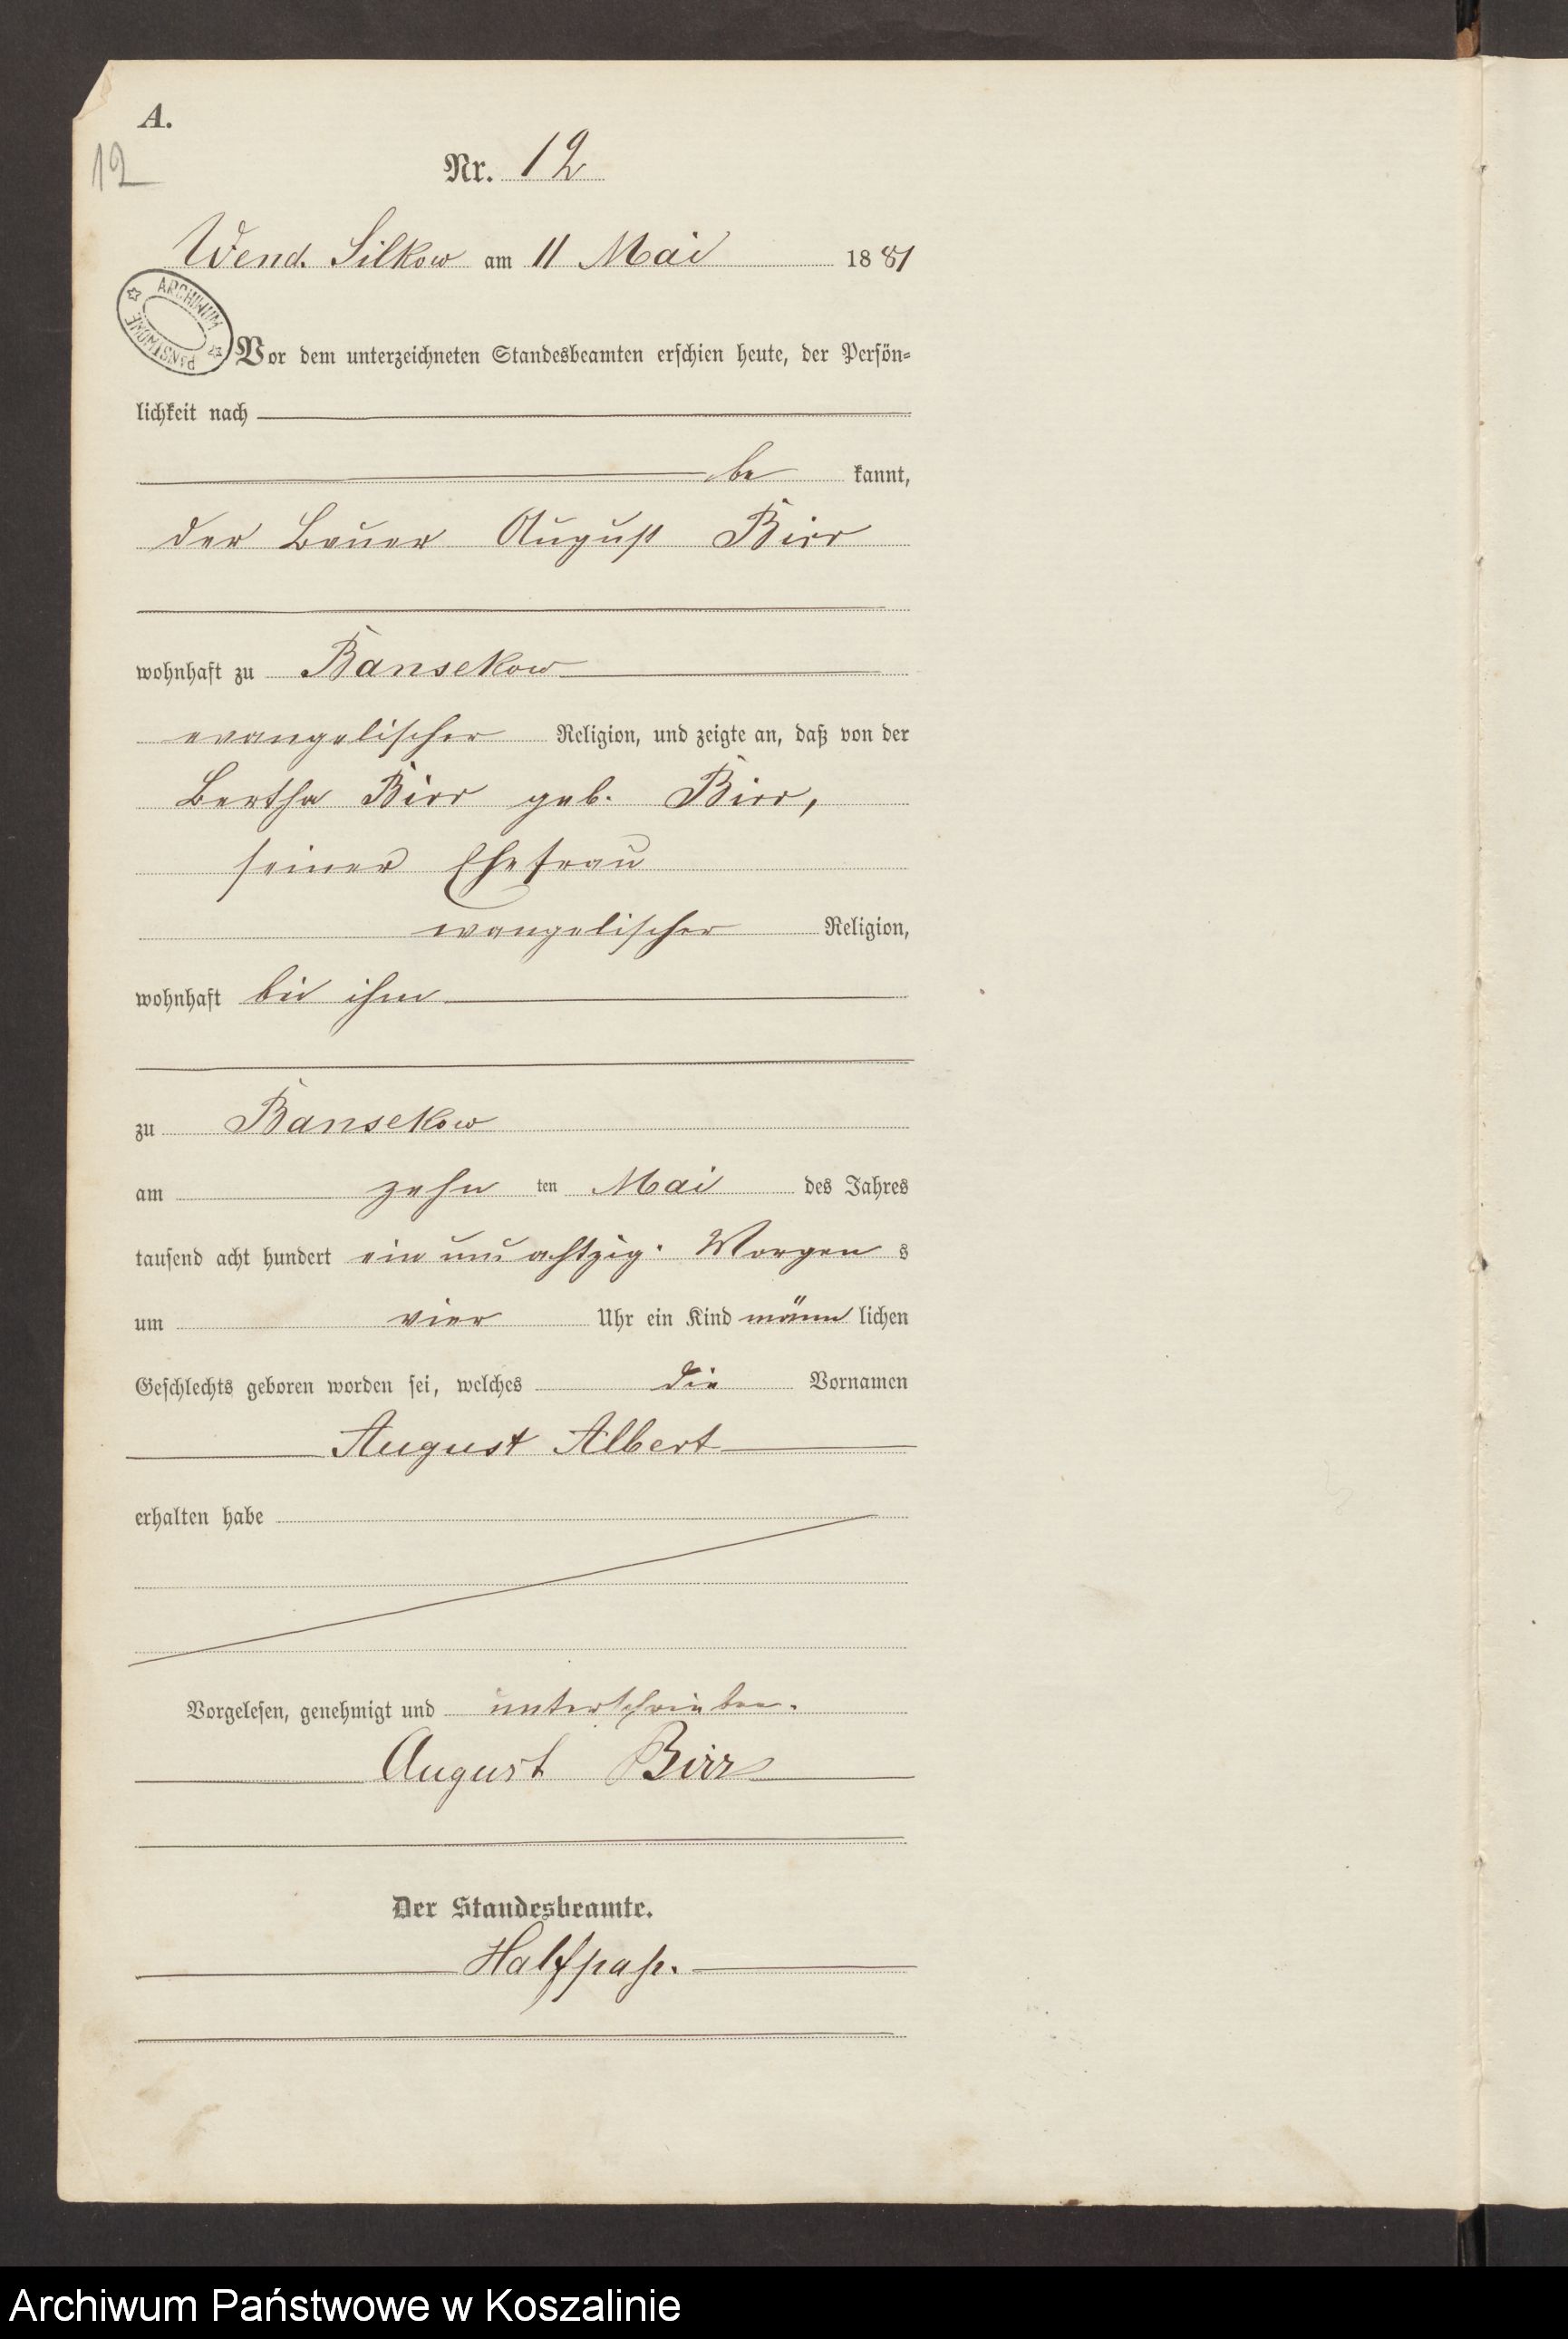 A.
12
Nr. 12
Wend. Silkow am 11 Mai 1881
ARCHIWUM PAŃSTWOWE
Vor dem unterzeichneten Standesbeamten erschien heute, der Persön-
lichkeit nach
be kannt,
der Bauer August Birr
wohnhaft zu Bansekow
evangelischer Religion, und zeigte an, daß von der
Bertha Birr geb. Birr,
seiner Ehefrau
evangelischer Religion,
wohnhaft bei ihm
zu Bansekow
am zehn ten Mai des Jahres
tausend acht hundert ein und achtzig Morgen s
um vier Uhr ein Kind männ lichen
Geschlechts geboren worden sei, welches die Vornamen
August Albert
erhalten habe
Vorgelesen, genehmigt und unterschrieben.
August Birr
Der Standesbeamte.
Halfpap.
Archiwum Państwowe w Koszalinie